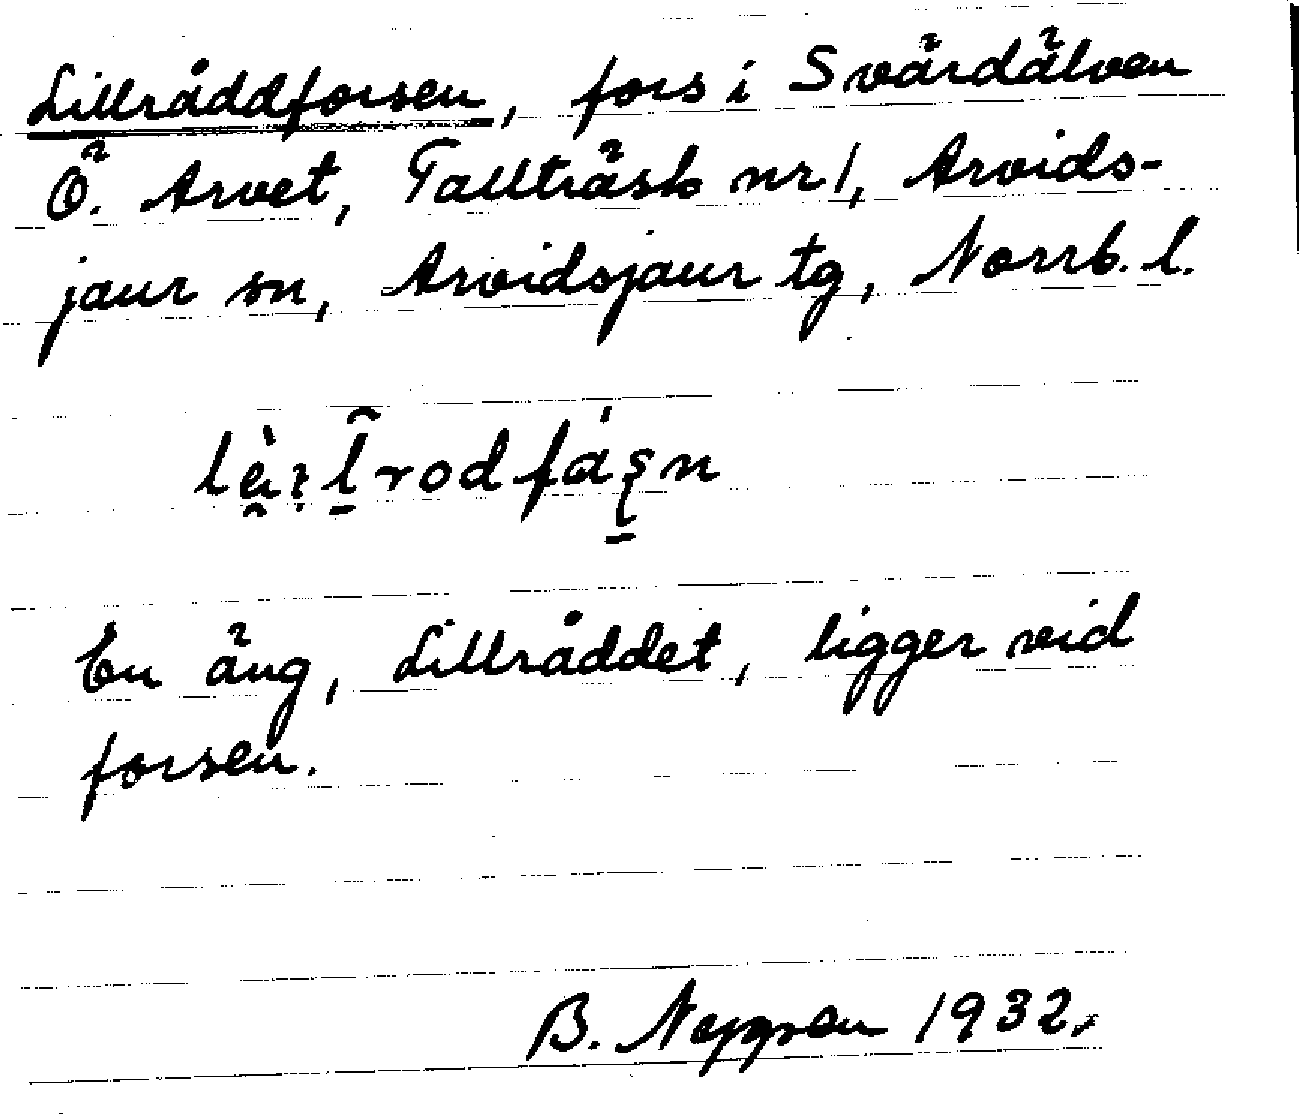 Lillråddforsen, fors i Svärdälven
Ö. Arvet, Tallträsk nr 1, Arvids-
jaur sn, Arvidsjaur tg, Norrb. l.
En äng, Lillråddet, ligger vid
forsen.
B. 1932.